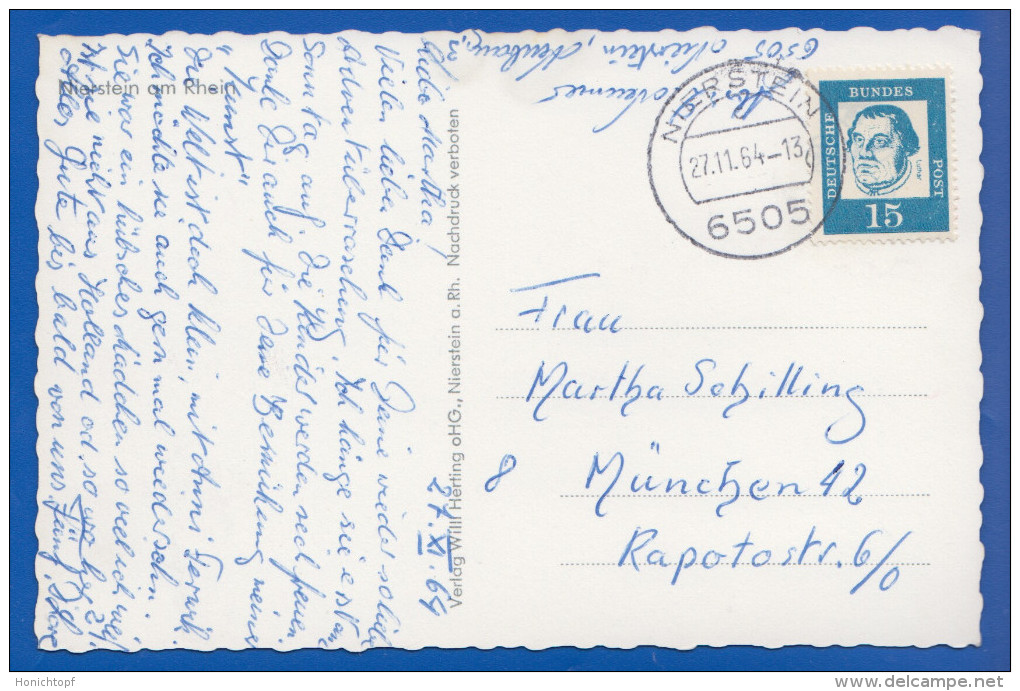 6505 Nierstein,
NIERSTEIN
27.11.64-13
6505
DEUTSCHE
BUNDES
POST
Luther
15
Frau
Martha Schilling
8 München 42
Rapotostr. 6/0
Verlag Willi Herting oHG., Nierstein a. Rh. Nachdruck verboten
Nierstein am Rhein
27.XI.64
Liebe Martha,
Vielen lieben Dank für Deine wieder so liebe
Adventüberraschung. Ich hänge sie erst am
Sonntag auf. Die Kinder werden sich freuen.
Danke Dir auch für Deine Bemühung meiner
"Kunst"
Die Welt ist doch klein, mit Anni
Ich möchte sie auch gern mal wiedersehn.
Sie war ein hübsches Mädchen so viel ich weiß
Ist sie nicht aus Holland od. so
Alles Gute bis bald von uns
Honichtopf
www.delcampe.net